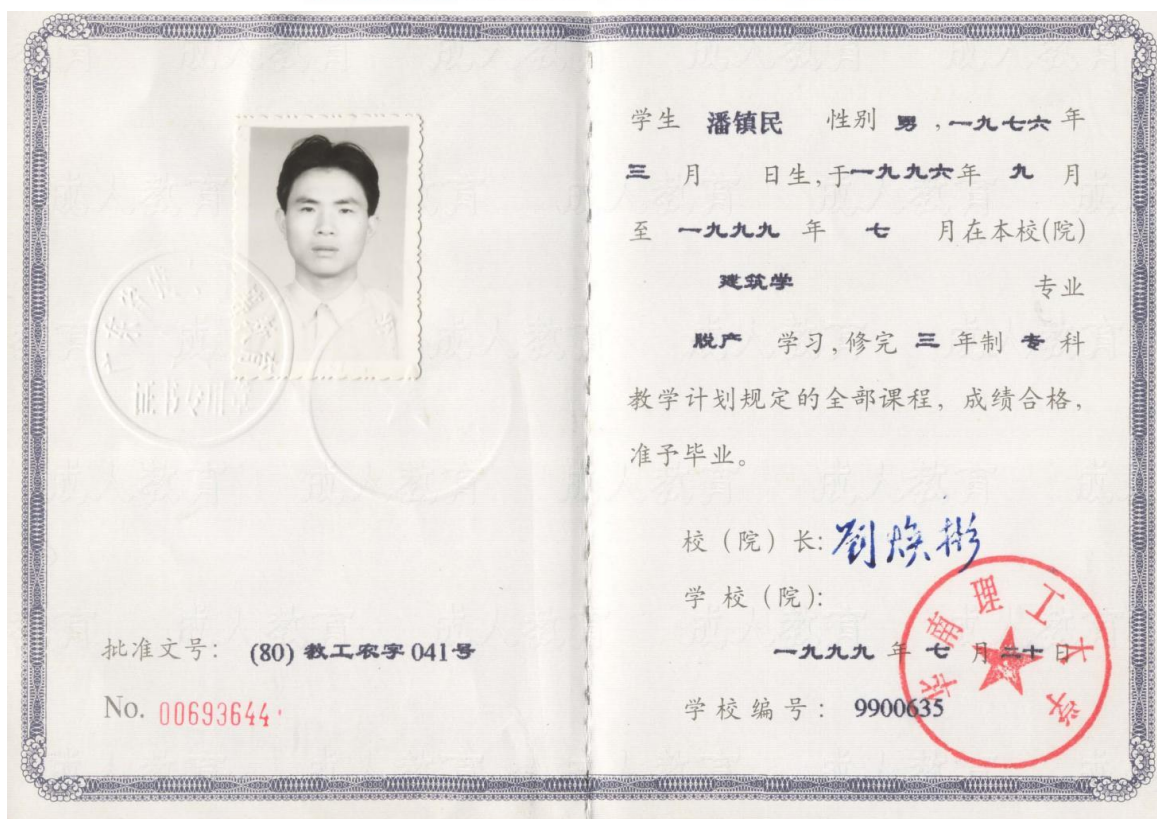 证书专用章
批准文号: (80) 教工农字 041号
No. 00693644
学生 潘镇民 性别 男 ,一九七六 年
三 月 日生,于一九九六年 九 月
至 一九九九 年 七 月在本校(院)
建筑学 专业
脱产 学习,修完 三 年制 专 科
教学计划规定的全部课程, 成绩合格,
准予毕业。
校 (院) 长: 刘焕彬
学 校 (院):
华南理工大学
一九九九 年 七 月 二十 日
学 校 编 号 : 9900635
成人教育